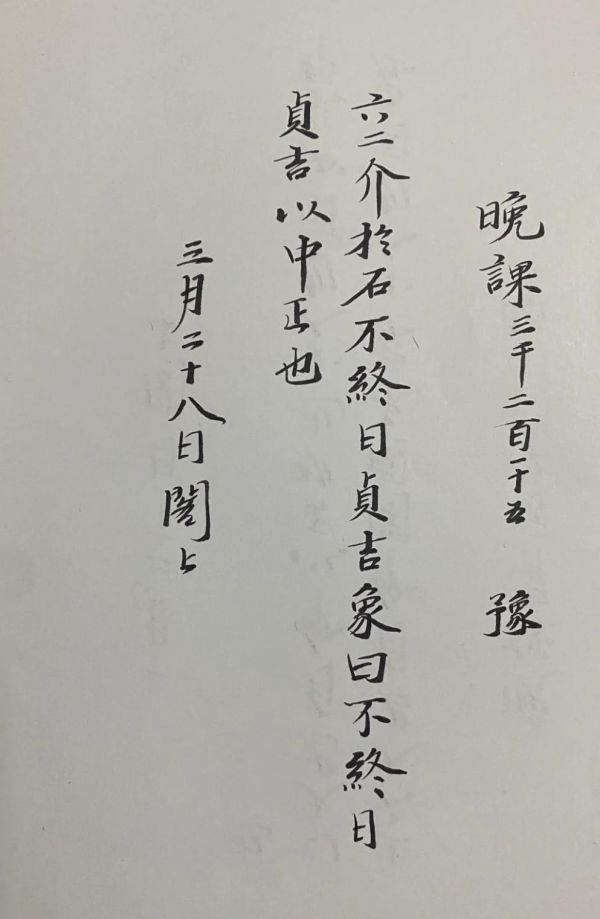 晚課三千二百一十五 豫
六二介於石不終日貞吉象曰不終日
貞吉以中正也
三月二十八日閣上